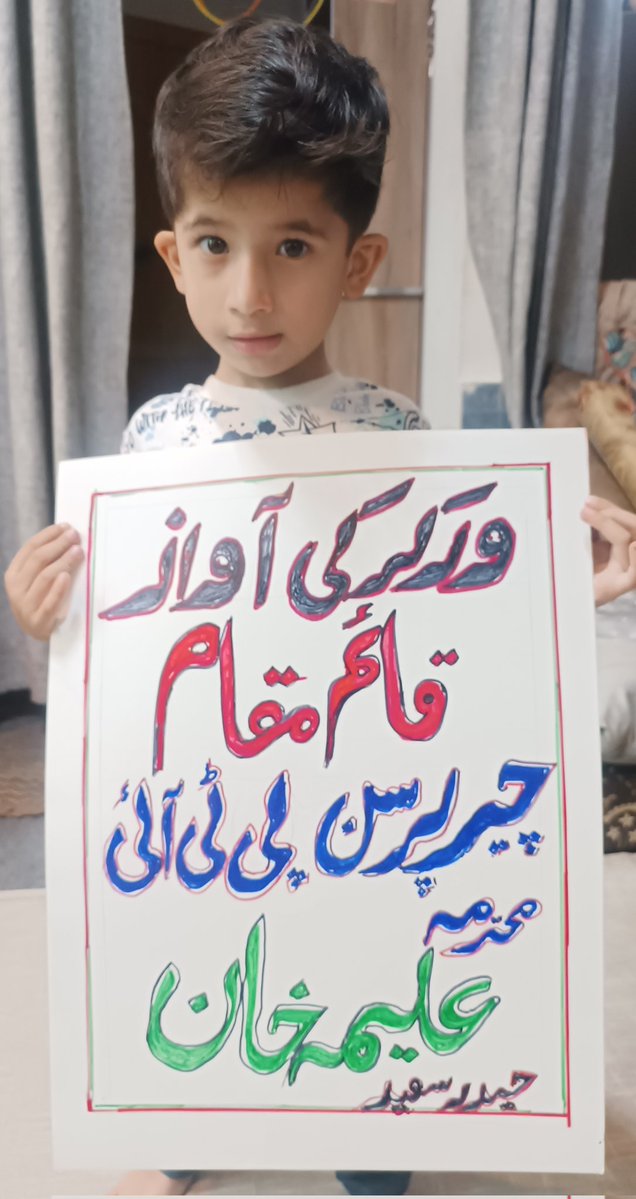 ورکرز کی آواز
قائم مقام
چیر پرسن پی ٹی آئی
محترمہ
علیمہ خان
حیدر سعید